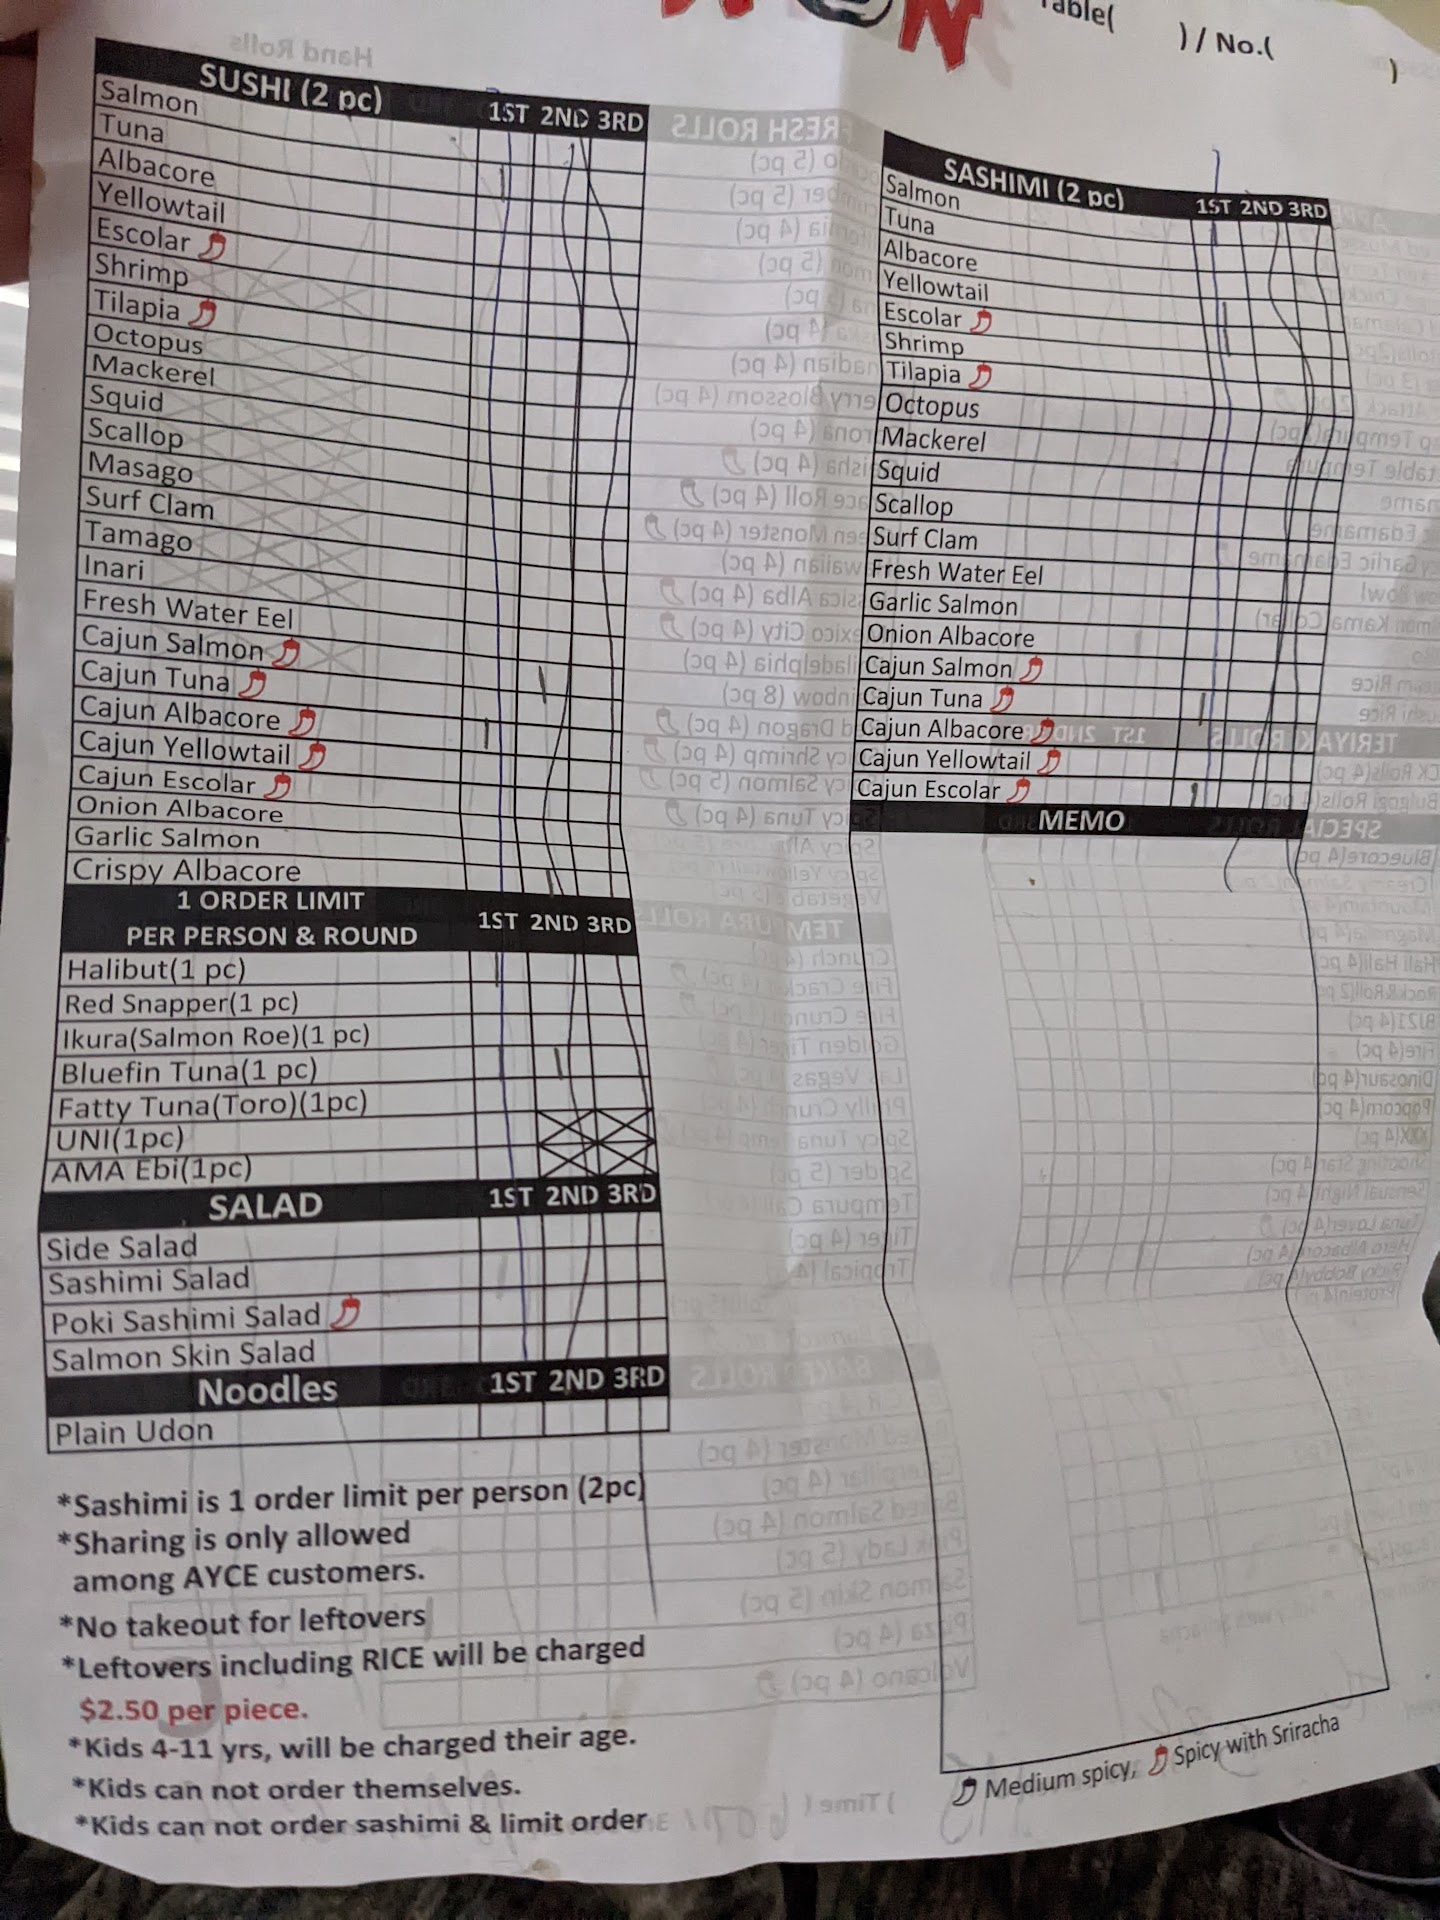 Table(          ) / No.(          )
SUSHI (2 pc) 1ST 2ND 3RD
Salmon
Tuna
Albacore
Yellowtail
Escolar
Shrimp
Tilapia
Octopus
Mackerel
Squid
Scallop
Masago
Surf Clam
Tamago
Inari
Fresh Water Eel
Cajun Salmon
Cajun Tuna
Cajun Albacore
Cajun Yellowtail
Cajun Escolar
Onion Albacore
Garlic Salmon
Crispy Albacore
1 ORDER LIMIT
PER PERSON & ROUND 1ST 2ND 3RD
Halibut(1 pc)
Red Snapper(1 pc)
Ikura(Salmon Roe)(1 pc)
Bluefin Tuna(1 pc)
Fatty Tuna(Toro)(1pc)
UNI(1pc)
AMA Ebi(1pc)
SALAD 1ST 2ND 3RD
Side Salad
Sashimi Salad
Poki Sashimi Salad
Salmon Skin Salad
Noodles 1ST 2ND 3RD
Plain Udon
*Sashimi is 1 order limit per person (2pc)
*Sharing is only allowed
among AYCE customers.
*No takeout for leftovers
*Leftovers including RICE will be charged
$2.50 per piece.
*Kids 4-11 yrs, will be charged their age.
*Kids can not order themselves.
*Kids can not order sashimi & limit order
SASHIMI (2 pc) 1ST 2ND 3RD
Salmon
Tuna
Albacore
Yellowtail
Escolar
Shrimp
Tilapia
Octopus
Mackerel
Squid
Scallop
Surf Clam
Fresh Water Eel
Garlic Salmon
Onion Albacore
Cajun Salmon
Cajun Tuna
Cajun Albacore
Cajun Yellowtail
Cajun Escolar
MEMO
Medium spicy, Spicy with Sriracha